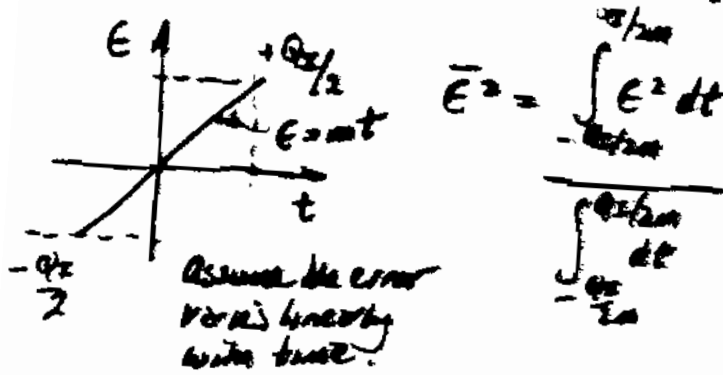 ϵ
+ QI/2
ϵ = mt
t
- QI/2
Assume the error
varies linearly
with time.
ϵ̄² = ∫_{-QI/2m}^{QI/2m} ϵ² dt / ∫_{-QI/2m}^{QI/2m} dt